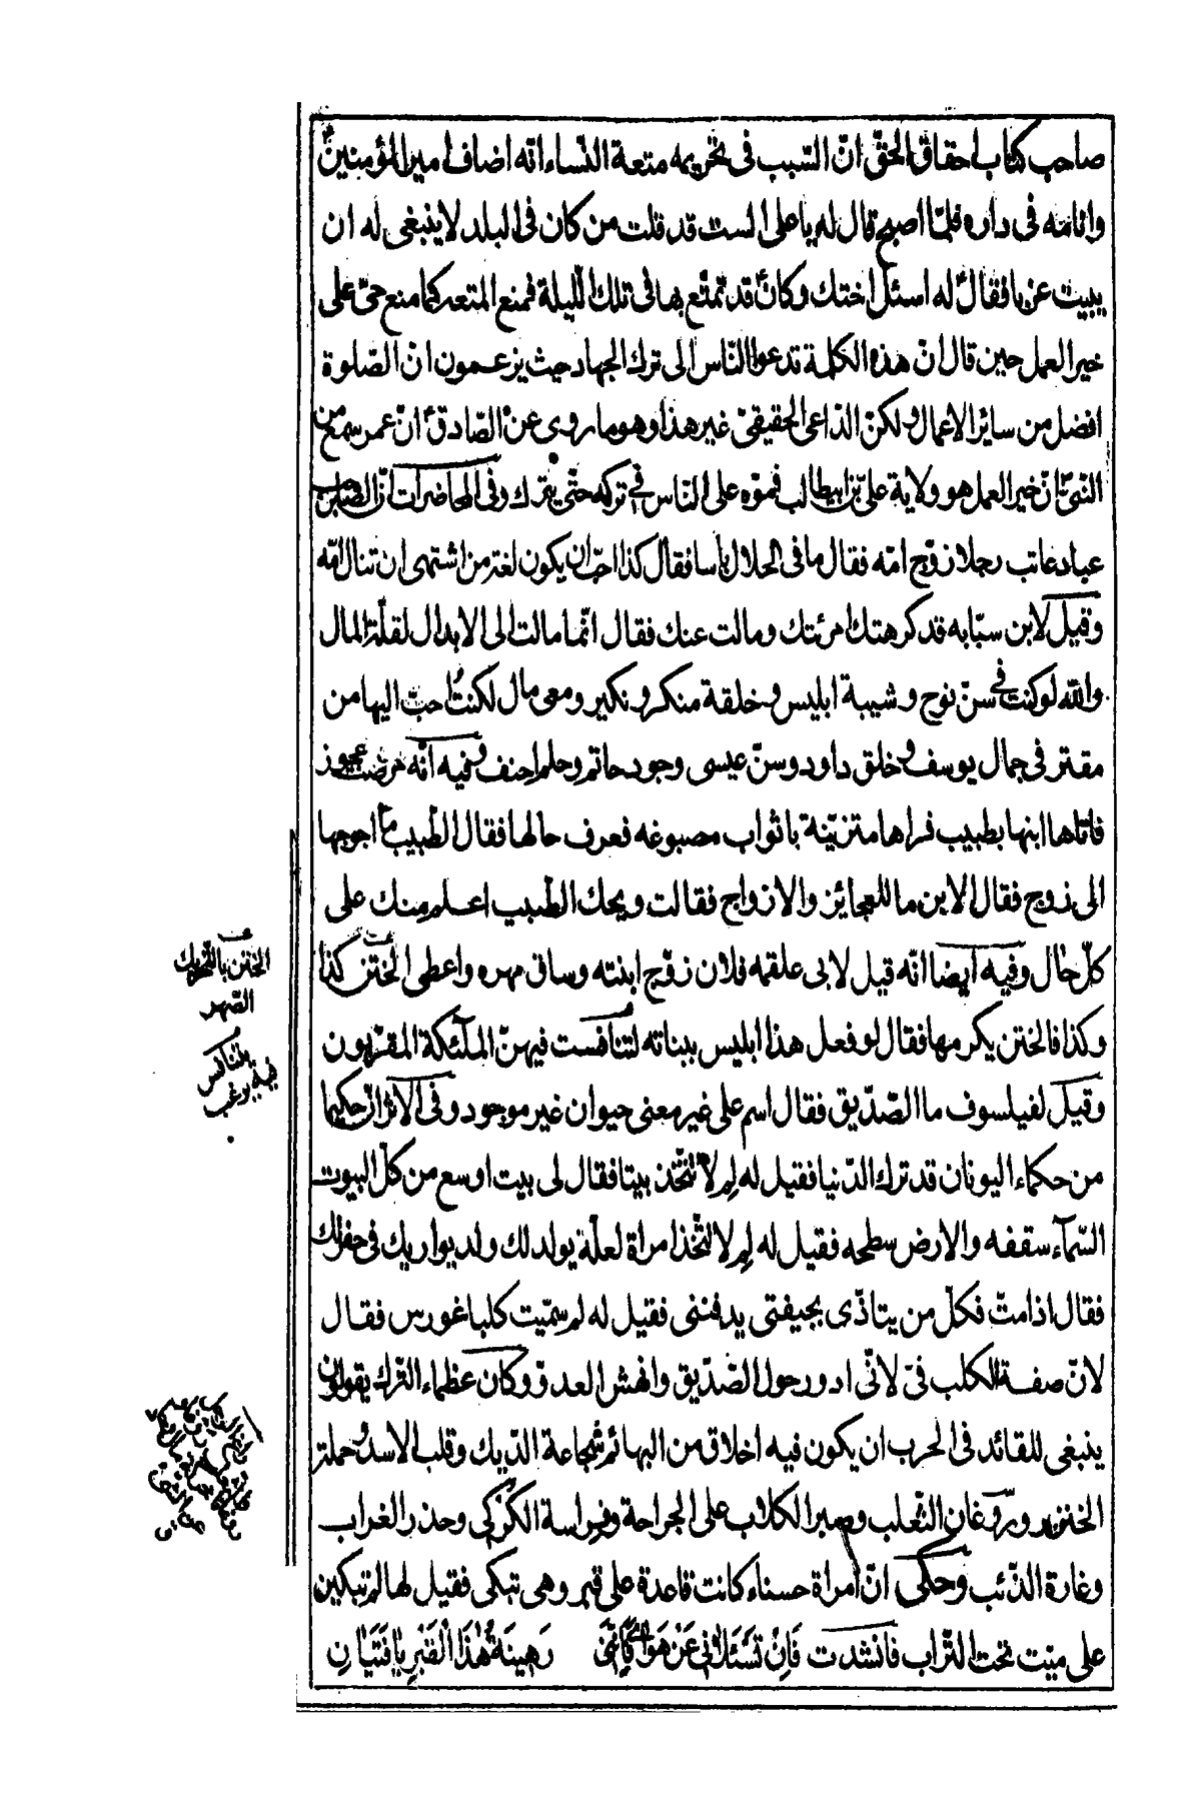 صاحب كتاب احقاق الحقّ انّ السّبب فى تحريمه متعة النّساء انّه اضاف امير المؤمنين
وانامه فى داره فلمّا اصبح قال له يا على الست قد قلت من كان فى البلد لا ينبغى له ان
يبيت عزبا فقال له اسئل اختك وكان قد تمتّع بها فى تلك اللّيلة فمنع المتعه كما منع حىّ على
خير العمل حين قال انّ هذه الكلمة تدعوا النّاس الى ترك الجهاد حيث يزعمون انّ الصّلوة
افضل من ساير الاعمال ولكنّ الدّاعى الحقيقى غير هذا وهو ما روى عن الصّادق انّ عمر سمع من
النّبىّ انّ خير العمل هو ولاية علىّ بن ابيطالب فموّه على النّاس فى تركه حتّى يترك وفى المحاضرات انّ الصّاحب بن
عباد عاتب رجلا زوّج امّه فقال ما فى الحلال باسا فقال كذا احبّ ان يكون لغة من اشتهى ان تنال امّه
وقيل لابن سبّابه قد كرهتك امرئتك ومالت عنك فقال انّما مالت الى الابدال لقلّة المال
والله لو كنت فى سنّ نوح وشيبة ابليس وخلقة منكر ونكير ومعى مال لكنت احبّ اليها من
مقتر فى جمال يوسف وخلق داود وسنّ عيسى وجود حاتم وحلم احنف وفيه انّه مرضت عجوز
فاتاها ابنها بطبيب فراها متزيّنة باثواب مصبوغه فعرف حالها فقال الطّبيب ما احوجها
الى زوج فقال الابن ما للعجائز والازواج فقالت ويحك الطّبيب اعلم منك على
كلّ حال وفيه ايضا انّه قيل لابى علقمه فلان زوّج ابنته وساق مهره واعطى الختن كذا
وكذا فالختن يكرمها فقال لو فعل هذا ابليس ببناته لتنافست فيهنّ الملّئكة المقرّبون
وقيل لفيلسوف ما الصّديق فقال اسم على غير معنى حيوان غير موجود وفى الاثر انّ حكيما
من حكماء اليونان قد ترك الدّنيا فقيل له لم لا تتّخذ بيتا فقال لى بيت اوسع من كلّ البيوت
السّمآء سقفه والارض سطحه فقيل له لم لا تتّخذ امراة لعلّه يولد لك ولد يواريك فى حفرتك
فقال اذا متّ فكلّ من يتاذّى بجيفتى يدفننى فقيل له لم سمّيت كلبا غورس فقال
لانّ صفة الكلب فىّ لانّى ادور حول الصّديق وانهش العدوّ وكان عظماء الترك يقولون
ينبغى للقائد فى الحرب ان يكون فيه اخلاق من البهائم شجاعة الدّيك وقلب الاسد وحملة
الخنزير وروغان الثّعلب وصبر الكلاب على الجراحة وفراسة الكركى وحذر الغراب
وغارة الذّئب وحكى انّ امراة حسناء كانت قاعدة على قبر وهى تبكى فقيل لها لم تبكين
على ميّت تحت التّراب فانشدت فَاِنْ تَسْئَلانى عَنْ هَواىَ فَاِنَّنى رَهينَةُ هٰذَا الْقَبْرِ يا فَتَيانِ
الختن بالتّحريك
الصّهر
يتنافس
فيه يرغب